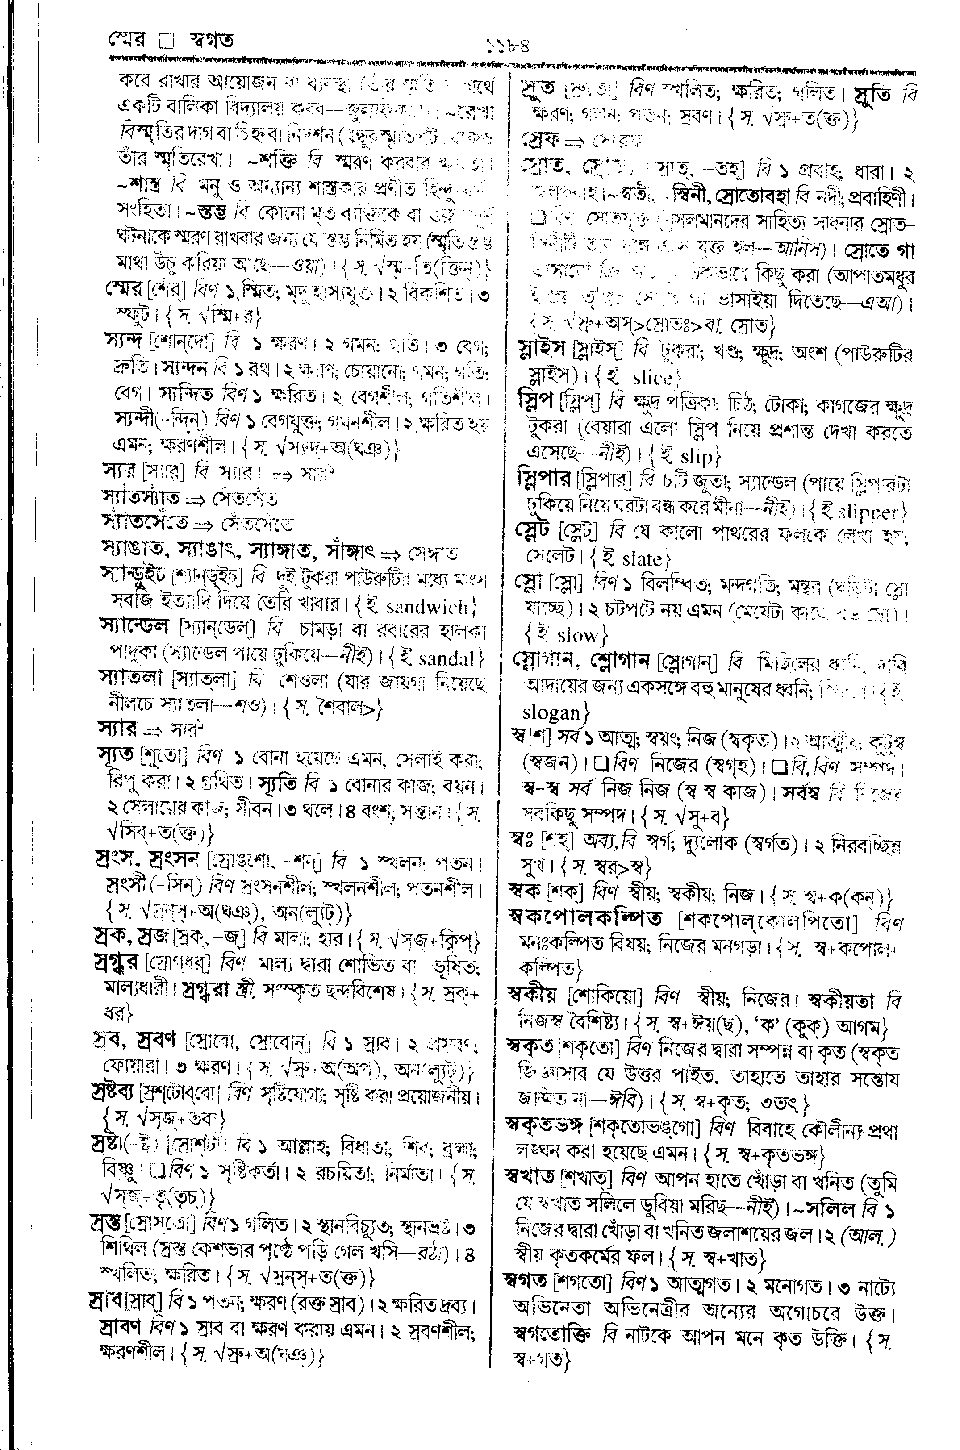 স্মের □ স্বগত
১১৮৪
করে রাখার আয়োজন বা ব্যবস্থা
একটি বালিকা বিদ্যালয়
বিস্মৃতির দাগ বা চিহ্ন বা নিদর্শন
তাঁর স্মৃতিরেখা। ~শক্তি বি স্মরণ করবার
~শাস্ত্র বি মনু ও অন্যান্য শাস্ত্রকার প্রণীত হিন্দু
সংহিতা। ~স্তম্ভ বি কোনো মৃত ব্যক্তিকে বা
ঘটনাকে স্মরণ রাখবার জন্য যে স্তম্ভ নির্মিত হয় (স্মৃতি স্তম্ভ
মাথা উঁচু করিয়া আছে—ওয়া)। {স. √স্মৃ+তি(ক্তিন্)}
স্মের [শের] বিণ ১ স্মিত; মৃদু হাস্যযুক্ত। ২ বিকশিত। ৩
স্ফুট। {স. √স্মি+র}
স্যন্দ [শোন্‌দো] বি ১ ক্ষরণ। ২ গমন; গতি। ৩ বেগ;
দ্রুতি। স্যন্দন বি ১ রথ। ২ ক্ষরণ; চোয়ানো; গমন; গতি;
বেগ। স্যন্দিত বিণ ১ ক্ষরিত। ২ বেগশীল; গতিশীল।
স্যন্দী (-ন্দিন্) বিণ ১ বেগযুক্ত; গমনশীল। ২ ক্ষরিত হয়
এমন; ক্ষরণশীল। {স. √স্যন্দ্+অ(ঘঞ্)}
স্যর [স্যার] বি স্যার। ⇒ সার
স্যাঁতস্যাঁত ⇒ সেঁতসেঁত
স্যাঁতসেঁতে ⇒ সেঁতসেঁতে
স্যাঙাত, স্যাঙাৎ, স্যাঙ্গাত, সাঁঙ্গাৎ ⇒ সেঙ্গাত
স্যান্ডুইচ [শ্যান্‌ডুইচ্] বি দুই টুকরা পাউরুটির মধ্যে মাংস
সবজি ইত্যাদি দিয়ে তৈরি খাবার। {ই sandwich}
স্যান্ডেল [স্যান্‌ডেল্] বি চামড়া বা রবারের হালকা
পাদুকা (স্যান্ডেল পায়ে ঢুকিয়ে—নীই)। {ই sandal}
স্যাতলা [স্যাত্‌লা] বি শেওলা (যার জায়গা নিয়েছে
নীলচে স্যাতলা—শও)। {স. শৈবাল>}
স্যার ⇒ সার
স্যূত [শূতো] বিণ ১ বোনা হয়েছে এমন, সেলাই করা;
রিপু করা। ২ গ্রথিত। স্যূতি বি ১ বোনার কাজ; বয়ন।
২ সেলায়ের কাজ; সীবন। ৩ থলে। ৪ বংশ; সন্তান। {স.
√সিব্+ত(ক্ত)}
স্রংস, স্রংসন [স্রোঙ্‌শো, -শন্] বি ১ স্খলন; পতন।
স্রংসী (-সিন্) বিণ স্রংসনশীল; স্খলনশীল; পতনশীল।
{স. √স্রন্‌স্+অ(ঘঞ্), অন(ল্যুট্)}
স্রক, স্রজ [স্রক, -জ্] বি মালা; হার। {স. √সৃজ্+ক্বিপ্}
স্রগ্ধর [স্রোগ্‌ধর] বিণ মাল্য দ্বারা শোভিত বা ভূষিত;
মাল্যধারী। স্রগ্ধরা স্ত্রী. সংস্কৃত ছন্দবিশেষ। {স. স্রক্+
ধর}
স্রব, স্রবণ [স্রোবো, স্রোবোন্] বি ১ স্রাব। ২ প্রস্রবণ;
ফোয়ারা। ৩ ক্ষরণ। {স. √স্রু+অ(অপ্), অন(ল্যুট্)}
স্রষ্টব্য [স্রশ্‌টোব্‌বো] বিণ সৃষ্টিযোগ্য; সৃষ্টি করা প্রয়োজনীয়।
{স. √সৃজ্+তব্য}
স্রষ্টা (-ষ্টৃ) [স্রোশ্‌টা] বি ১ আল্লাহ; বিধাতা; শিব; ব্রহ্মা;
বিষ্ণু। □বিণ ১ সৃষ্টিকর্তা। ২ রচয়িতা; নির্মাতা। {স.
√সৃজ্+তৃ(তৃচ্)}
স্রস্ত [স্রোস্‌তো] বিণ ১ গলিত। ২ স্থানবিচ্যুত; স্থানভ্রষ্ট। ৩
শিথিল (স্রস্ত কেশভার পৃষ্ঠে পড়ি গেল খসি—রঠা)। ৪
স্খলিত; ক্ষরিত। {স. √স্রন্‌স্+ত(ক্ত)}
স্রাব [স্রাব্] বি ১ পতন; ক্ষরণ (রক্ত স্রাব)। ২ ক্ষরিত দ্রব্য।
স্রাবণ বিণ ১ স্রাব বা ক্ষরণ করায় এমন। ২ স্রবণশীল;
ক্ষরণশীল। {স. √স্রু+অ(ঘঞ্)}
স্রুত [স্রুতো] বিণ স্খলিত; ক্ষরিত; গলিত। স্রুতি বি
ক্ষরণ; গলন; পতন; স্রবণ। {স. √স্রু+ত(ক্ত)}
স্রেফ ⇒ সেরেফ
স্রোত, স্রোতঃ [স্রোত্, -তহ্] বি ১ প্রবাহ; ধারা। ২
-স্বিনী, স্রোতোবহা বি নদী; প্রবাহিণী।
মুসলমানদের সাহিত্য সাধনার স্রোত-
যুক্ত হল—আনিস)। স্রোতে গা
কিছু করা (আপাতমধুর
ভাসাইয়া দিতেছে—এআ)।
{স. √স্রু+অস্>স্রোতঃ>বা. স্রোত}
স্লাইস [স্লাইস্] বি টুকরা; খণ্ড; ক্ষুদ্র; অংশ (পাউরুটির
স্লাইস)। {ই slice}
স্লিপ [স্লিপ্] বি ক্ষুদ্র পত্রিকা; চিঠ; টোকা; কাগজের ক্ষুদ্র
টুকরা (বেয়ারা এলো স্লিপ নিয়ে প্রশান্ত দেখা করতে
এসেছে—নীই)। {ই slip}
স্লিপার [স্লিপার্] বি চটি জুতা; স্যান্ডেল (পায়ে স্লিপারটা
ঢুকিয়ে নিয়ে ঘরটা বন্ধ করে মীনা—নীই)। {ই slipper}
স্লেট [স্লেট্] বি যে কালো পাথরের ফলকে লেখা হয়;
সেলেট। {ই slate}
স্লো [স্লো] বিণ ১ বিলম্বিত; মন্দগতি; মন্থর (ঘড়িটা স্লো
যাচ্ছে)। ২ চটপটে নয় এমন (মেয়েটা কাজে বড় স্লো)।
{ই slow}
স্লোগান, শ্লোগান [স্লোগান্] বি মিছিলের ধ্বনি, দাবি
আদায়ের জন্য একসঙ্গে বহু মানুষের ধ্বনি; {ই
slogan}
স্ব [শ] সর্ব ১ আত্ম; স্বয়ং; নিজ (স্বকৃত)। ২ আত্মীয়; কুটুম্ব
(স্বজন)। □বিণ নিজের (স্বগৃহ)। □বি,বিণ সম্পদ।
স্ব-স্ব সর্ব নিজ নিজ (স্ব স্ব কাজ)। সর্বস্ব বি নিজের
সবকিছু সম্পদ। {স. √সু+ব}
স্বঃ [শহ] অব্য,বি স্বর্গ; দ্যুলোক (স্বর্গত)। ২ নিরবচ্ছিন্ন
সুখ। {স. স্বর্>স্ব}
স্বক [শক্] বিণ স্বীয়; স্বকীয়; নিজ। {স. স্ব+ক(কন্)}
স্বকপোলকল্পিত [শকপোল্‌কোল্‌পিতো] বিণ
মনঃকল্পিত বিষয়; নিজের মনগড়া। {স. স্ব+কপোল+
কল্পিত}
স্বকীয় [শোকিয়ো] বিণ স্বীয়; নিজের। স্বকীয়তা বি
নিজস্ব বৈশিষ্ট্য। {স. স্ব+ঈয়(ছ), ‘ক’ (কুক্) আগম}
স্বকৃত [শকৃতো] বিণ নিজের দ্বারা সম্পন্ন বা কৃত (স্বকৃত
জিজ্ঞাসার যে উত্তর পাইত, তাহাতে তাহার সন্তোষ
জন্মিত না—ঈবি)। {স. স্ব+কৃত; ৩তৎ}
স্বকৃতভঙ্গ [শকৃতোভঙ্‌গো] বিণ বিবাহে কৌলীন্য প্রথা
লঙ্ঘন করা হয়েছে এমন। {স. স্ব+কৃতভঙ্গ}
স্বখাত [শখাত্] বিণ আপন হাতে খোঁড়া বা খনিত (তুমি
যে স্বখাত সলিলে ডুবিয়া মরিছ—নীই)। ~সলিল বি ১
নিজের দ্বারা খোঁড়া বা খনিত জলাশয়ের জল। ২ (আল.)
স্বীয় কৃতকর্মের ফল। {স. স্ব+খাত}
স্বগত [শগতো] বিণ ১ আত্মগত। ২ মনোগত। ৩ নাট্যে
অভিনেতা অভিনেত্রীর অন্যের অগোচরে উক্ত।
স্বগতোক্তি বি নাটকে আপন মনে কৃত উক্তি। {স.
স্ব+গত}